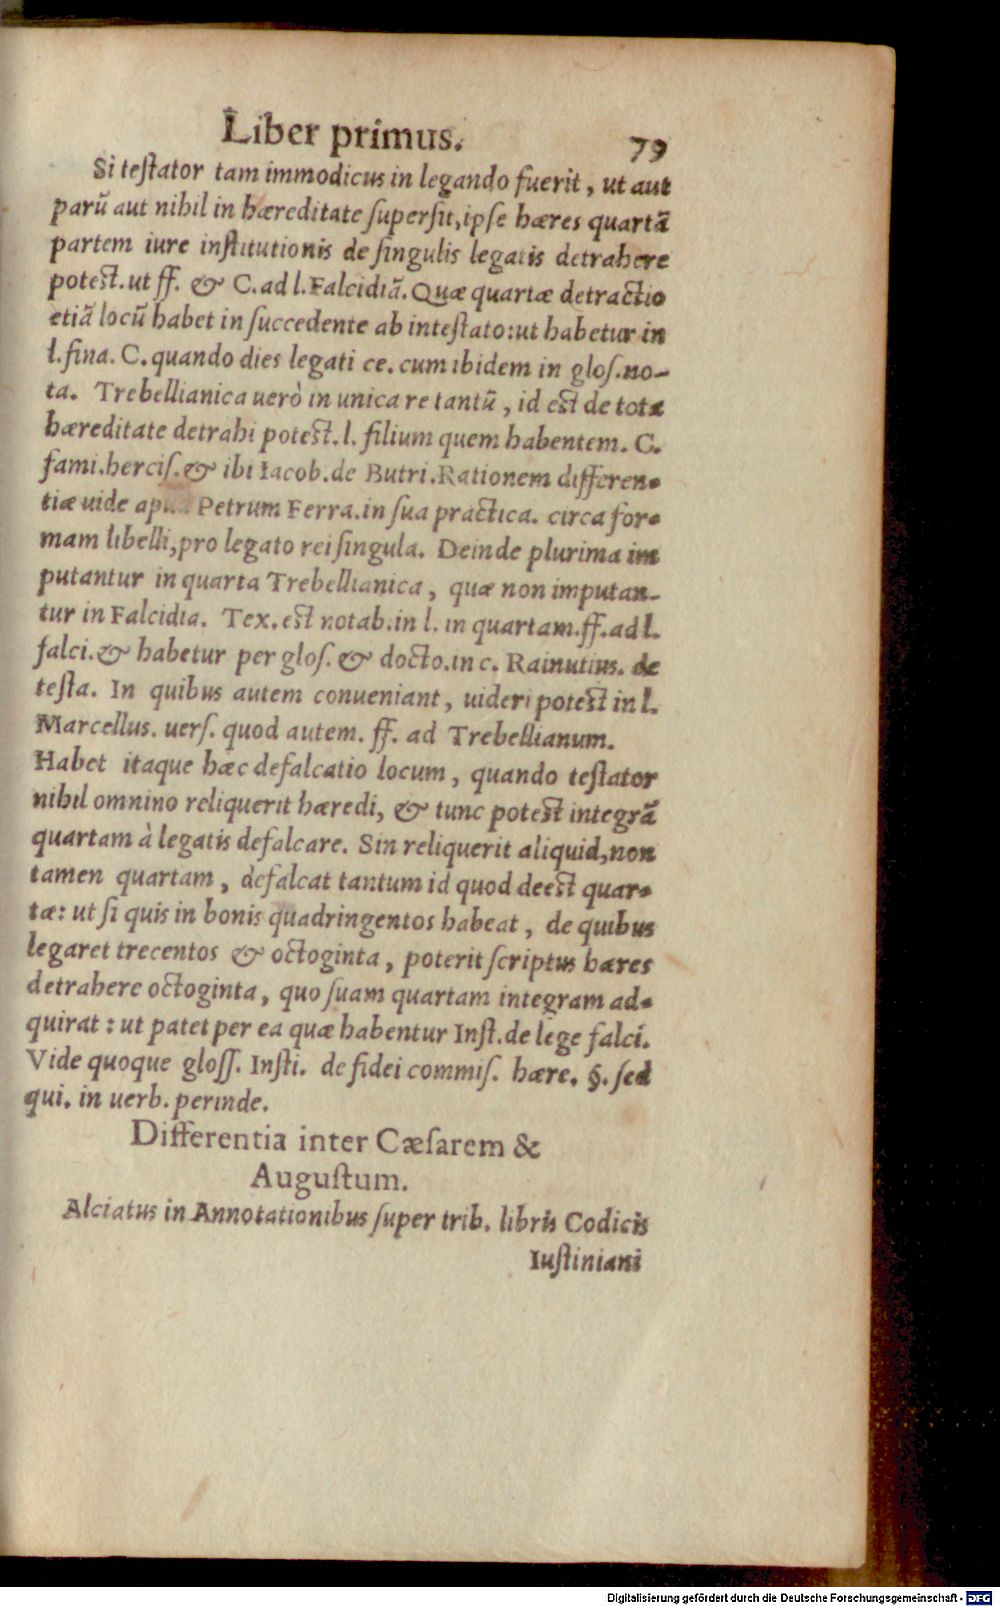 Liber primus. 79
Si teſtator tam immodicus in legando fuerit, ut aut
parũ aut nihil in hæreditate ſuperſit, ipſe hæres quartã
partem iure inſtitutionis de ſingulis legatis detrahere
poteſt. ut ff. & C. ad l. Falcidiã. Quæ quartæ detractio
etiã locũ habet in ſuccedente ab inteſtato: ut habetur in
l. fina. C. quando dies legati ce. cum ibidem in gloſ. no-
ta. Trebellianica uerò in unica re tantũ, id eſt de tota
hæreditate detrahi poteſt. l. filium quem habentem. C.
fami. herciſ. & ibi Iacob. de Butri. Rationem differen-
tiæ uide apud Petrum Ferra. in ſua practica. circa for-
mam libelli, pro legato rei ſingula. Deinde plurima im
putantur in quarta Trebellianica, quæ non imputan-
tur in Falcidia. Tex. eſt notab. in l. in quartam. ff. ad l.
falci. & habetur per gloſ. & docto. in c. Rainutius. de
teſta. In quibus autem conueniant, uideri poteſt in l.
Marcellus. uerſ. quod autem. ff. ad Trebellianum.
Habet itaque hæc defalcatio locum, quando teſtator
nihil omnino reliquerit hæredi, & tunc poteſt integrã
quartam à legatis defalcare. Sin reliquerit aliquid, non
tamen quartam, defalcat tantum id quod deeſt quar-
tæ: ut ſi quis in bonis quadringentos habeat, de quibus
legaret trecentos & octoginta, poterit ſcriptus hæres
detrahere octoginta, quo ſuam quartam integram ad-
quirat: ut patet per ea quæ habentur Inſt. de lege falci.
Vide quoque gloſſ. Inſti. de fidei commiſ. hære. §. ſed
qui. in uerb. perinde.
Differentia inter Cæſarem &
Auguſtum.
Alciatus in Annotationibus ſuper trib. libris Codicis
Iuſtiniani
Digitalisierung gefördert durch die Deutsche Forschungsgemeinschaft - DFG